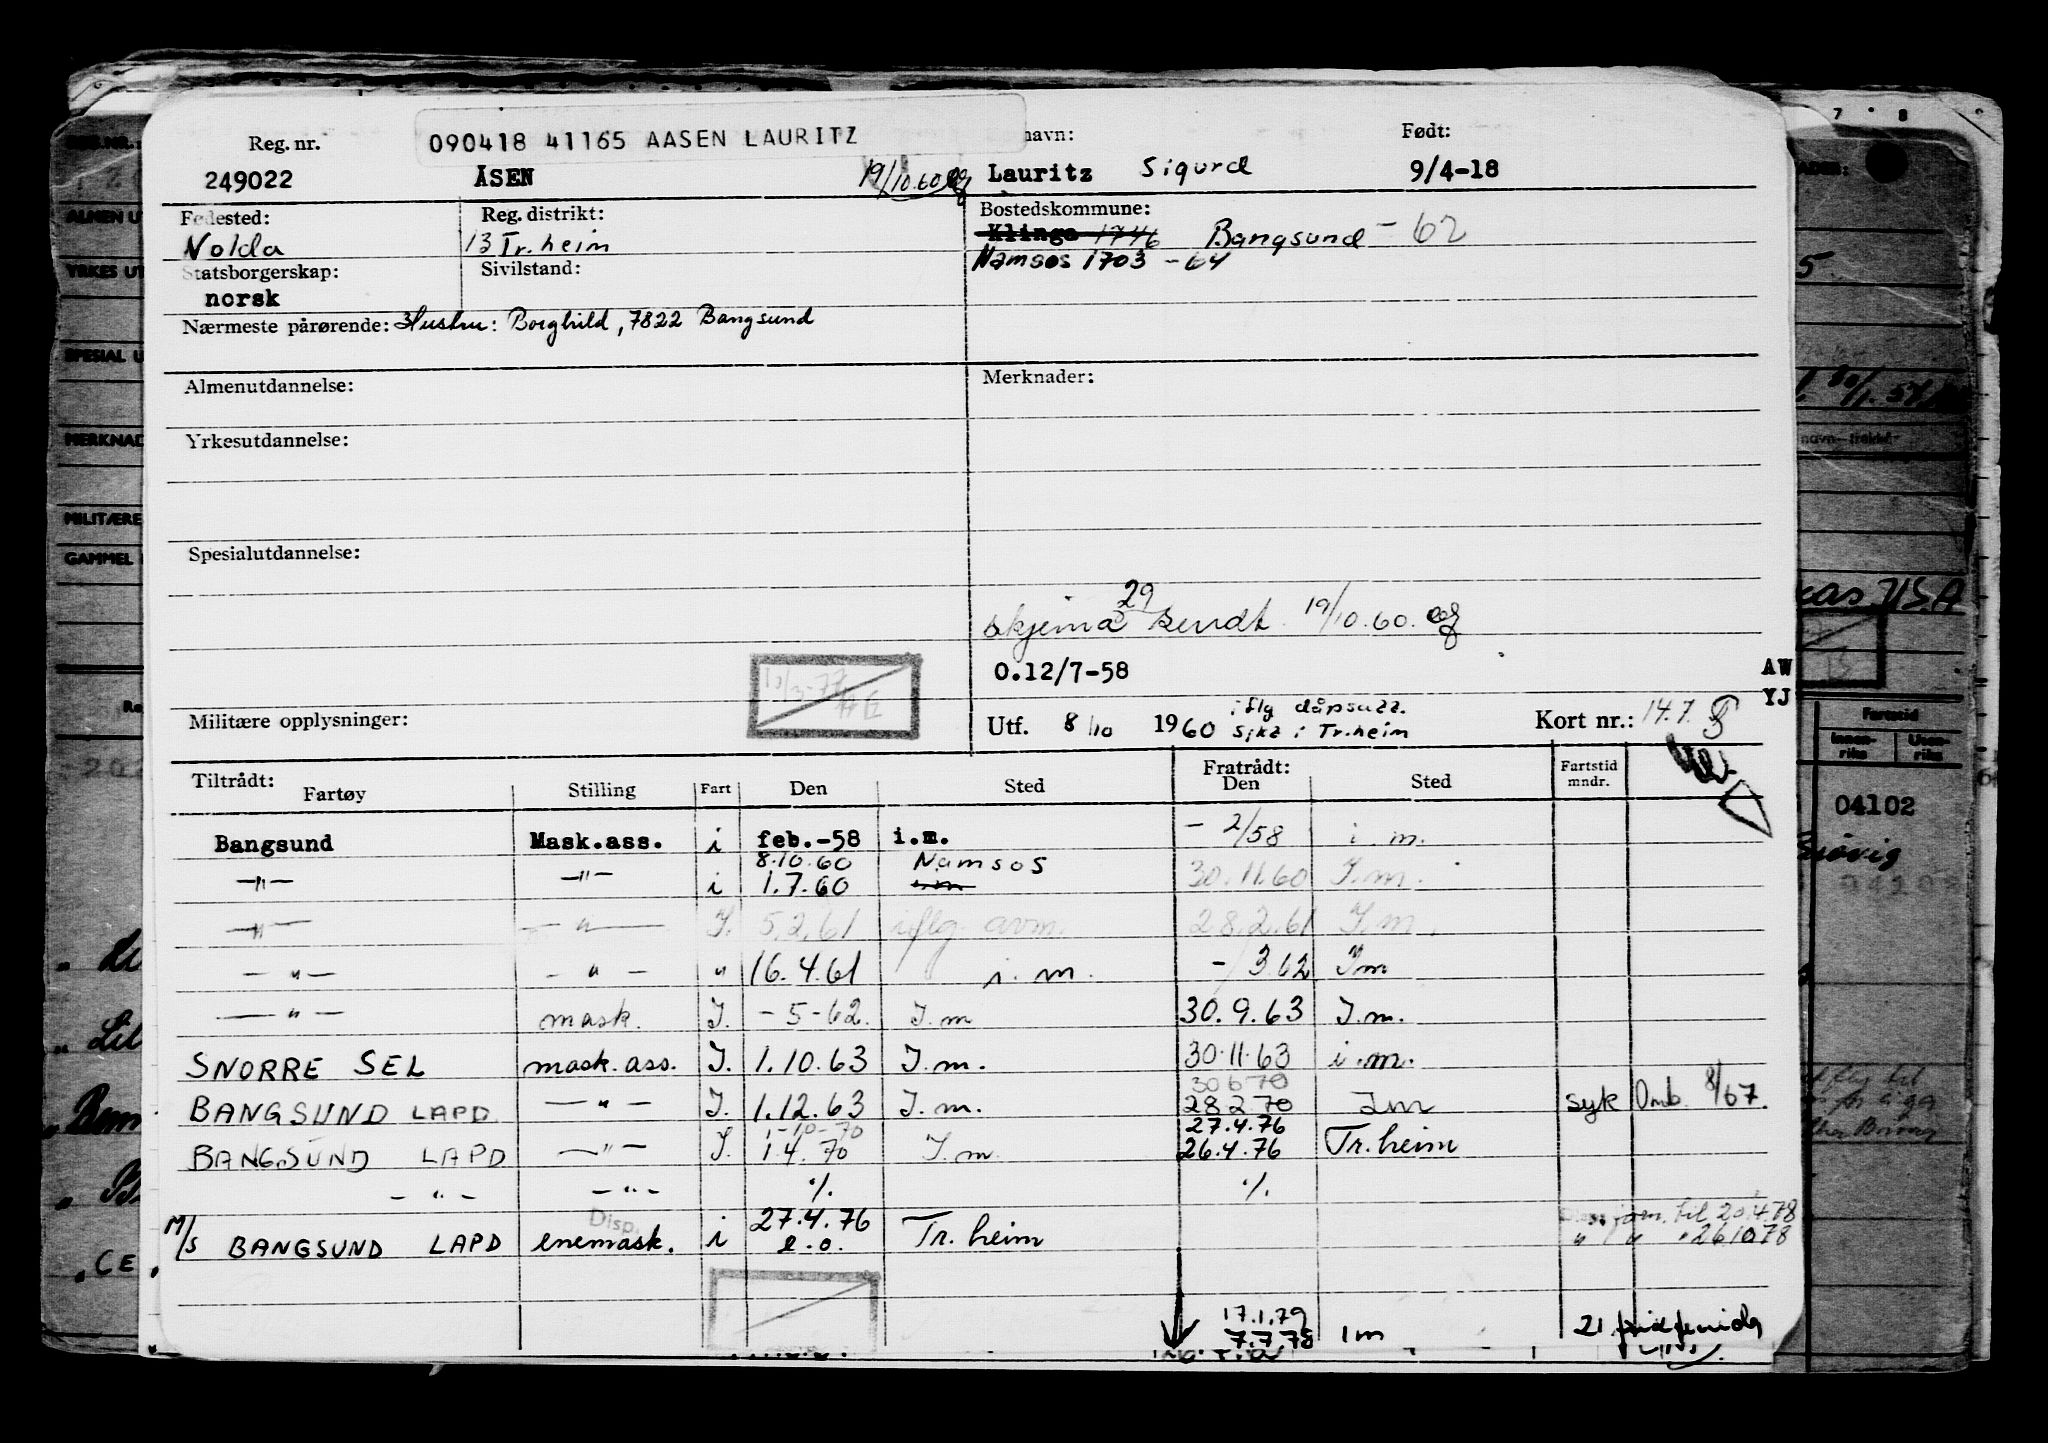 Reg. nr. 090418 41165 AASEN LAURITZ navn: Født:
249022 ÅSEN 19/10.60 Lauritz Sigurd 9/4-18
Fødested: Reg. distrikt: Bostedskommune:
Volda 13 Tr.heim Klinga 1746 Bangsund - 62
Statsborgerskap: Sivilstand: Namsos 1703 - 64
norsk
Nærmeste pårørende: Hustru: Borghild, 7822 Bangsund
Almenutdannelse: Merknader:
Yrkesutdannelse:
Spesialutdannelse:
29
skjema sendt 19/10.60.
O.12/7-58 AW
YJ
Militære opplysninger: Utf. 8/10 1960 iflg dåpsatt. Kort nr.: 14.7.
Tiltrådt: Fratrådt: Fartstid
Fartøy Stilling Fart Den Sted Den Sted mndr.
Bangsund Mask.ass. i feb.-58 i.m. - 2/58 i.m.
8.10.60 Namsos
—"— —"— i 1.7.60 i.m 30.11.60 I.m.
—"— —"— I. 5.2.61 iflg. avm. 28.2.61 I.m.
—"— —"— " 16.4.61 i.m. -/3 62 Im
—"— mask. I. -5-62. I.m 30.9.63 I.m.
SNORRE SEL mask.ass. I. 1.10.63 I.m. 30.11.63 i.m.
30 6 70
BANGSUND LAPD. —"— I. 1.12.63 I.m. 28 2 70 Im syk Omb. 8/67.
1-10-70 27.4.76
BANGSUND LAPD —"— I. 1.4.70 I.m. 26.4.76 Tr.heim
—"— —"— ./. ./.
Disp. 27.4.76 til 20.4.78
M/S BANGSUND LAPD enemask. i e.o. Tr.heim " " " 26.10.78
17.1.79
7.7.78 Im 21
04102